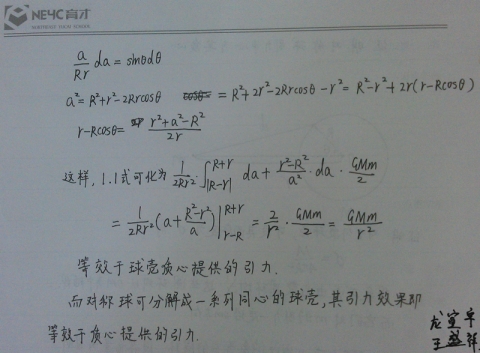 NEYC育才
a/(Rr) da = sinθdθ
a² = R²+r²-2Rrcosθ = R²+2r²-2Rrcosθ-r² = R²-r²+2r(r-Rcosθ)
r-Rcosθ = (r²+a²-R²)/(2r)
这样, 1.1式可化为 1/(2Rr²) ∫_{|R-r|}^{R+r} da + (r²-R²)/a² · da · GMm/2
= 1/(2Rr²) (a + (R²-r²)/a) |_{r-R}^{R+r} = 2/r² · GMm/2 = GMm/r²
等效于球壳质心提供的引力.
而对称球可分解成一系列同心的球壳, 其引力效果即
等效于质心提供的引力.